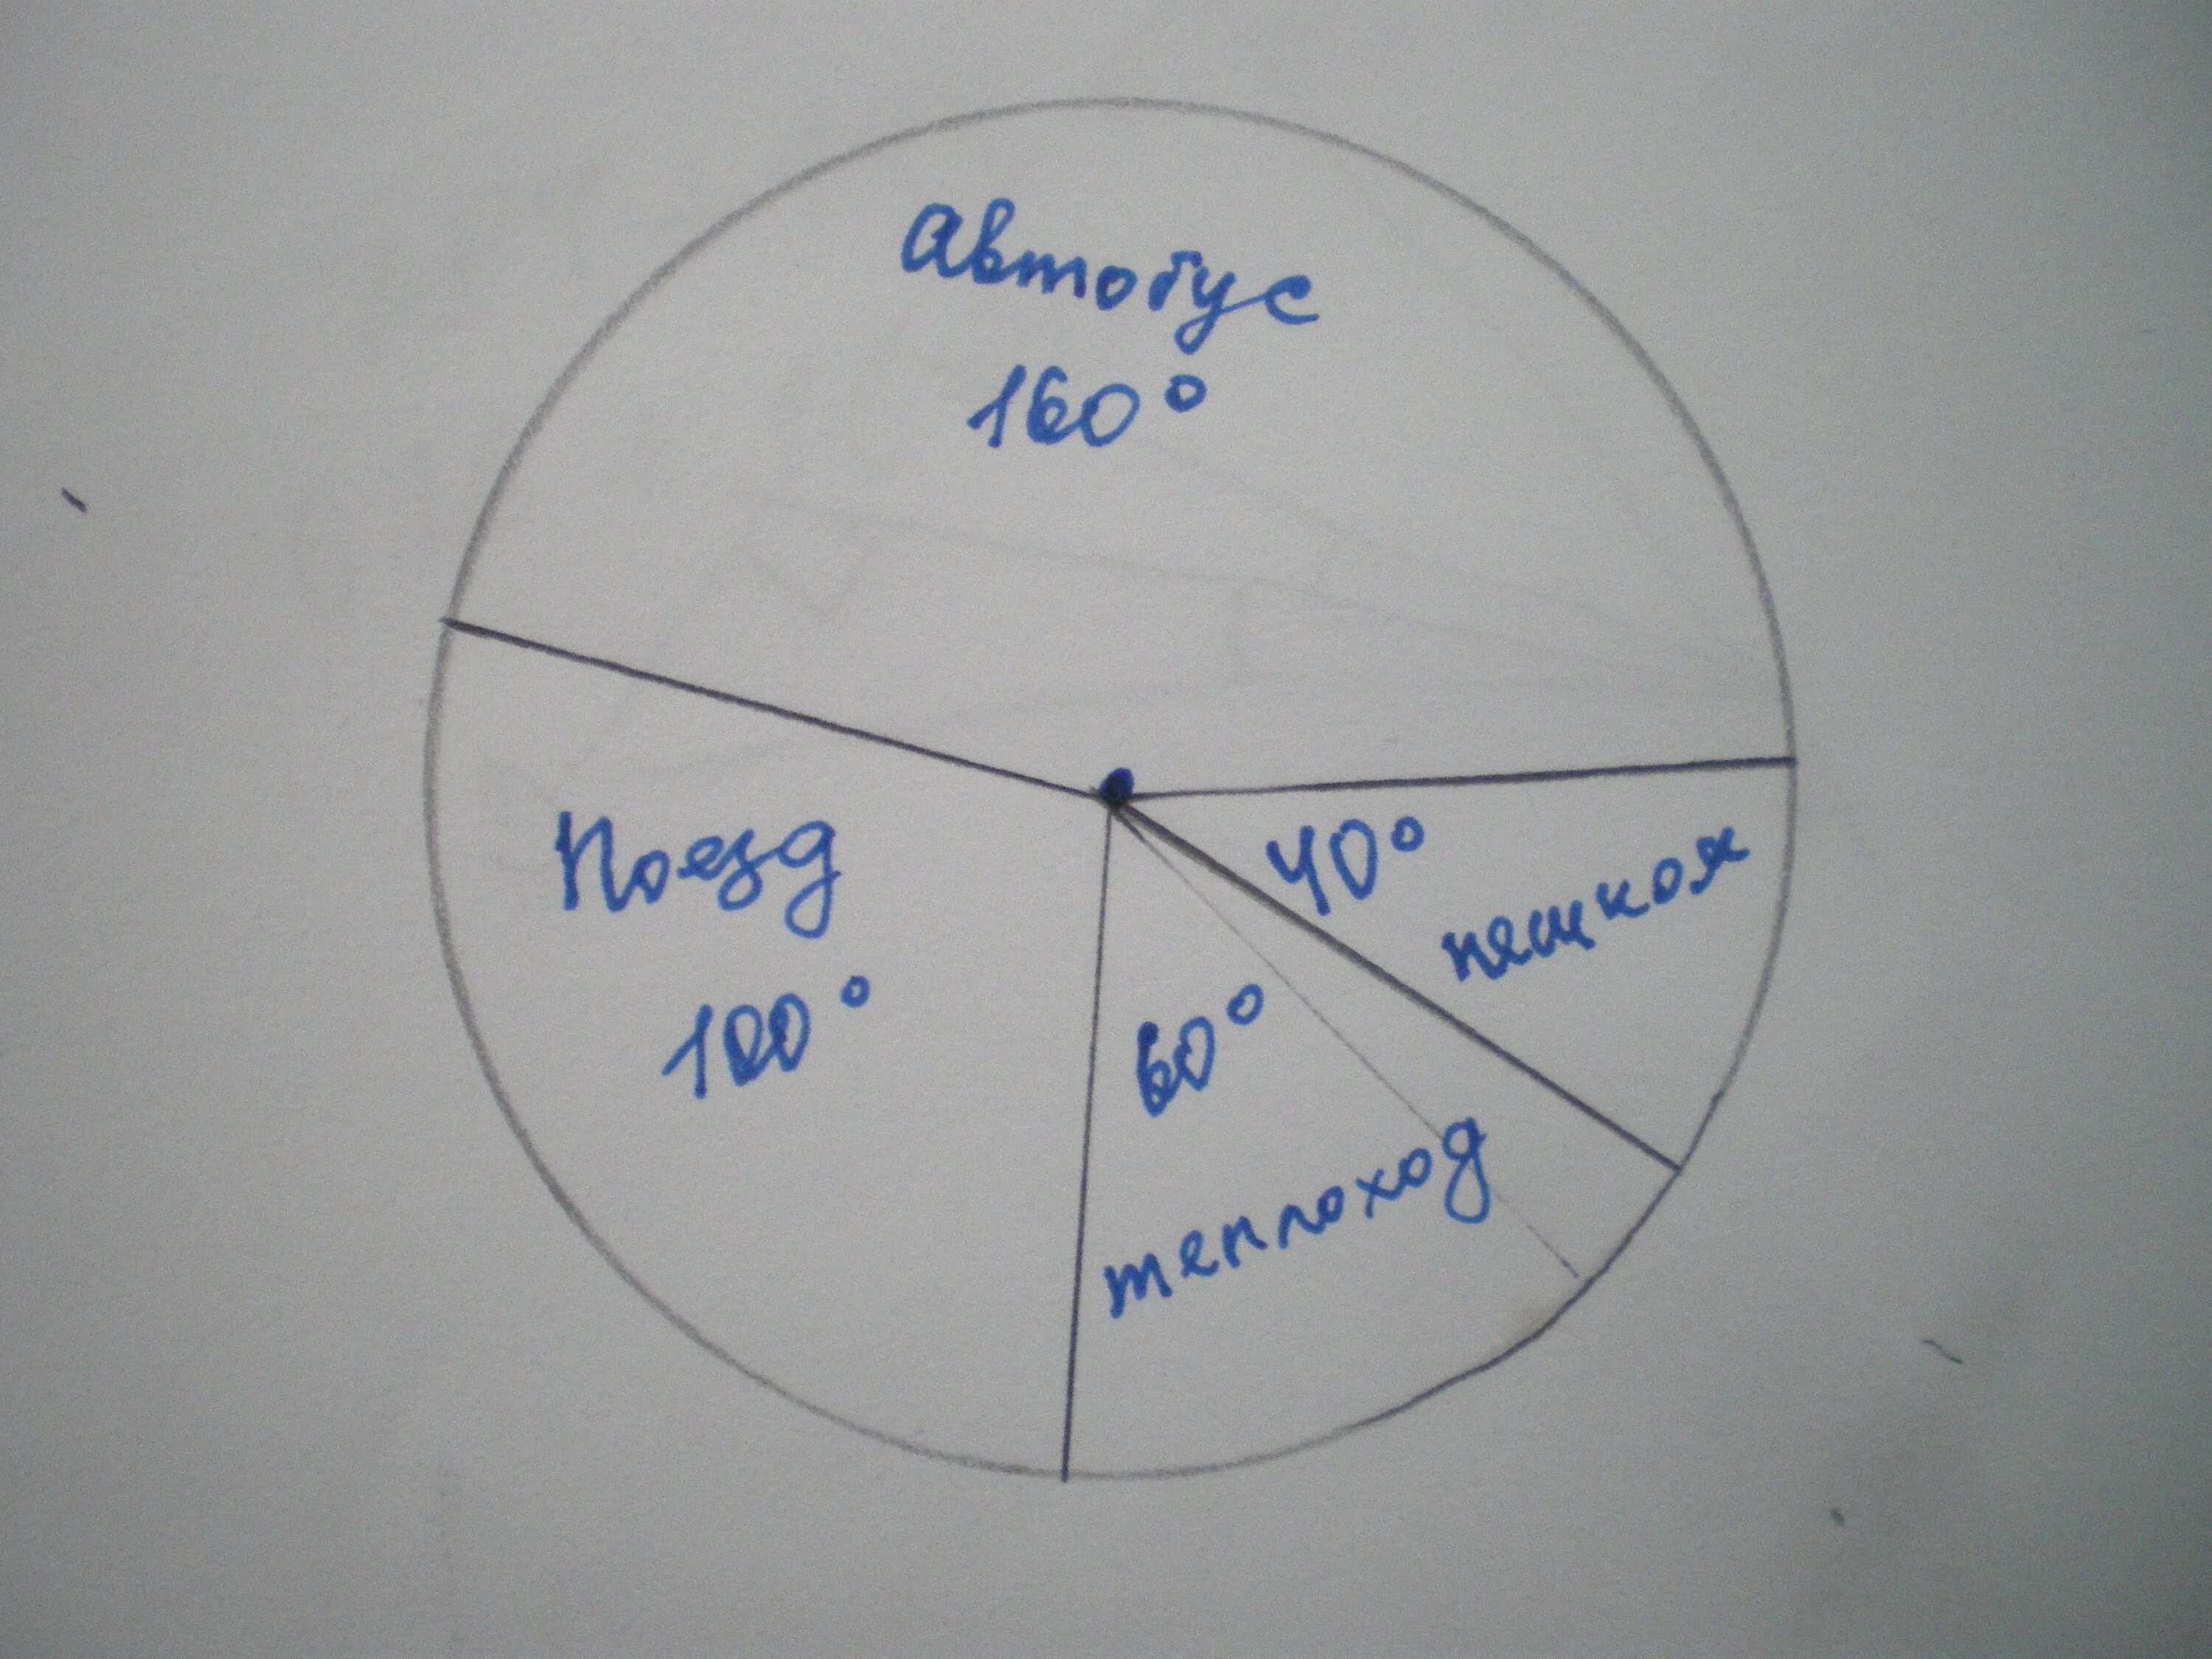 Автобус
160°
Поезд
100°
40°
пешком
60°
теплоход